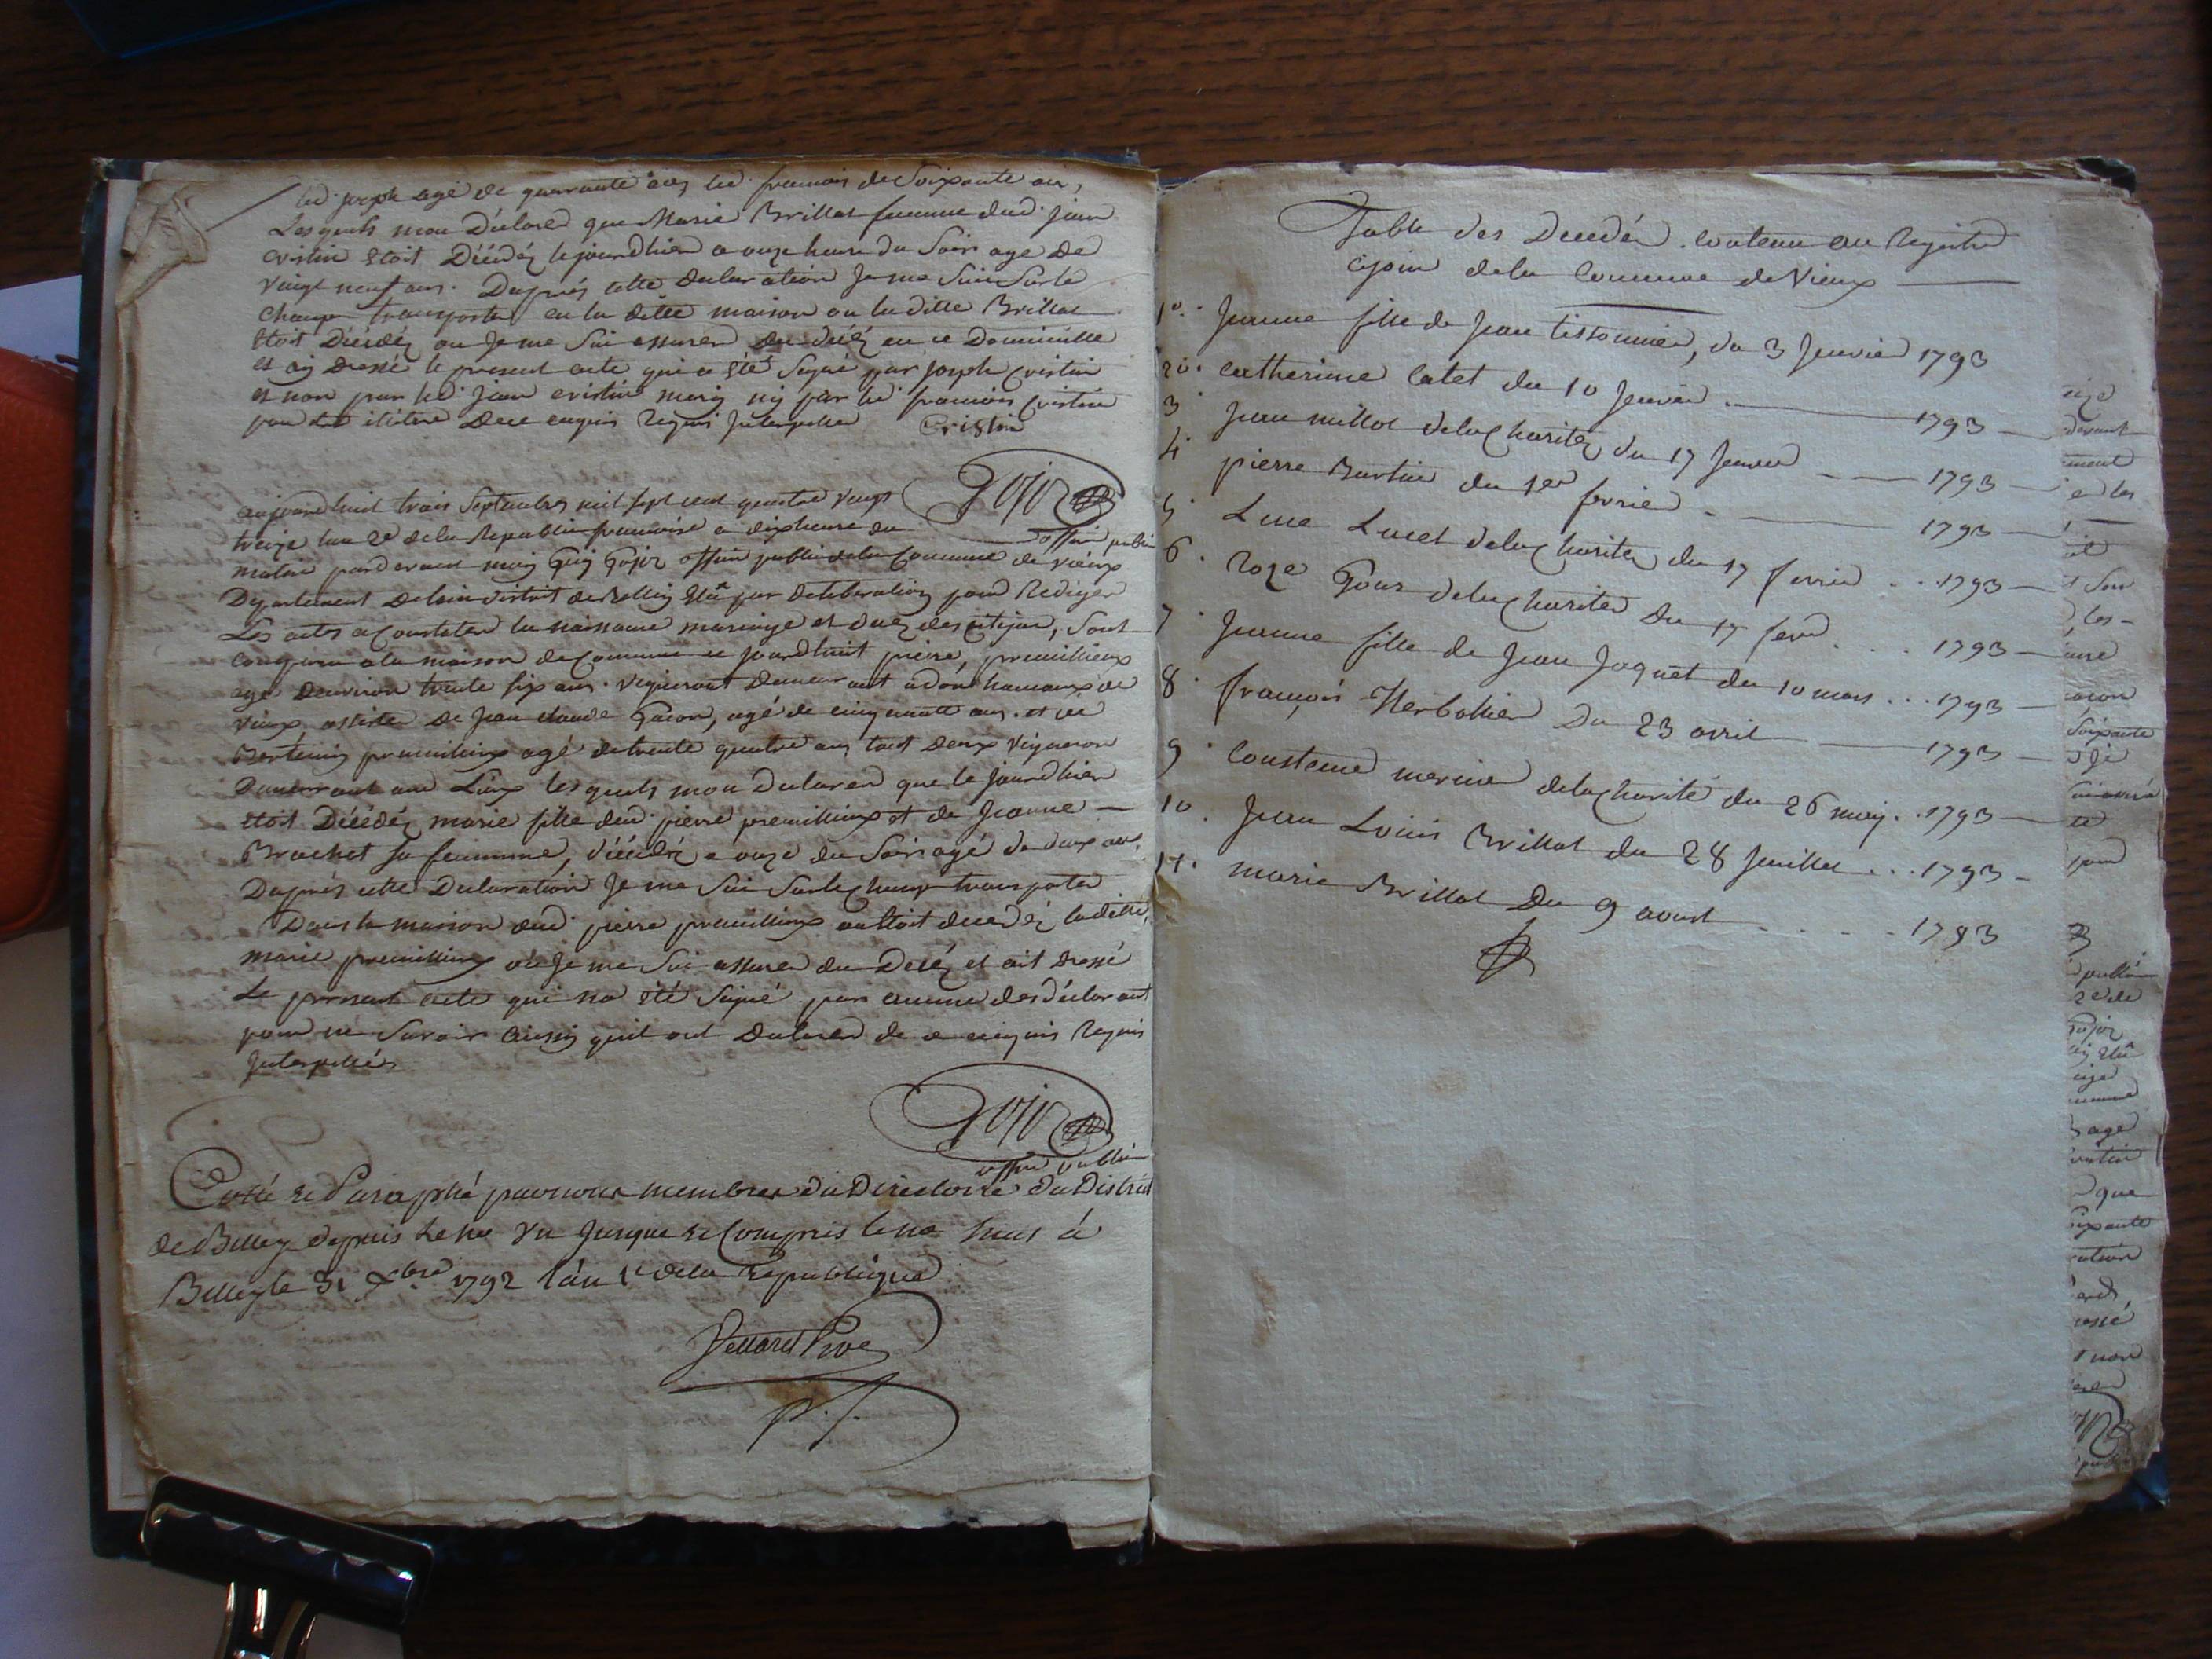 led. joseph agé de quarante ans led. francois de Soixante ans,
Lesquels mon Déclaré que Marie Brillat femme dud. jean
cristin etoit Décédéz lejourdhier a onze heure du Soir agé de
vingt neuf ans. Daprés cette Declaration Je me Suis Surle
champ transporté en la ditte maison ou laditte Brillat
étoit Décédéz ou Je me Sui assurer du décéz en ce Domicille
et aÿ Dressé le present acte qui a été Signé par joseph cristin
et non par led. jean cristin ny par led. francois cristin
pour illitéré Dece enquis Requis Interpeller Cristin
Gojoz
offier public
aujourdhuit trois Septembre mil sept cent quatre vingt
treize lan 2e dela Republic francoise a dixheure du
matin pardevant moy Guy Gojoz offier public dela Commune de vieux
Departement Delain district de Belley par deliberation pour Rediger
Les actes a Constater la naissance mariage et decéz des citojen, Sont
comparu ala maison deCommune ce jourdhuit pierre, premillieux
agé denviron trente six ans. vigneront Demeurant hameaux de
vieux assister de Jean claude Gacon, agé de cinquante ans. et de
premillieux agé detrente quatre ans tout deux vigneron
Demeurant aud Lieux lesquels mon declarer que le jourdhier
étoit Décédéz marie fille dud. pierre premillieux et de Jeanne
Brachet sa femme, décédéz a onze du Soir agé de deux ans.
Daprés cette Declaration Je me Sui Surle champ transporter
Dans la maison dud. pierre premillieux ou etoit decedéz laditte,
marie premillieux ou Je me Sui assurer du Decéz et ait Dressé
Le present acte qui na été Signé par aucun des déclarant
pour ne Savoir ainsy quil ont Declarer de ce enquis Requis
Interpellés
Gojoz
offier public
Cotté et Paraphé par nous membres du Directoire du District
de Belley depuis le no un jusque et Compris le no huit à
Belley le 31 xbre 1792 l'an 1e dela Republique

Table des Decedés . contenu au Registre
cijoin dela Commune de Vieux
1o. Jeanne fille de Jean tissonnier, du 3 Janvier 1793
2o. catherinne catet du 10 Janvier 1793
3 Jean millot delaCharitéz du 17 Janvier 1793
4. pierre Martin du 1er fevrier 1793
5 Luce Lucet delaCharitéz du 17 fevrier . . 1793
6. roze Gour delaCharitéz Du 17 fevr . . . 1793
7. Jeanne fille de Jean Joquet du 10 mars . . . 1793
8. françois Herbollier Du 23 avril 1793
9. Constence merine delaCharité du 26 may . . 1793
10. Jean Louis Brillat du 28 Juillet . . . 1793
11. marie Brillat Du 9 aoust . . . . 1793